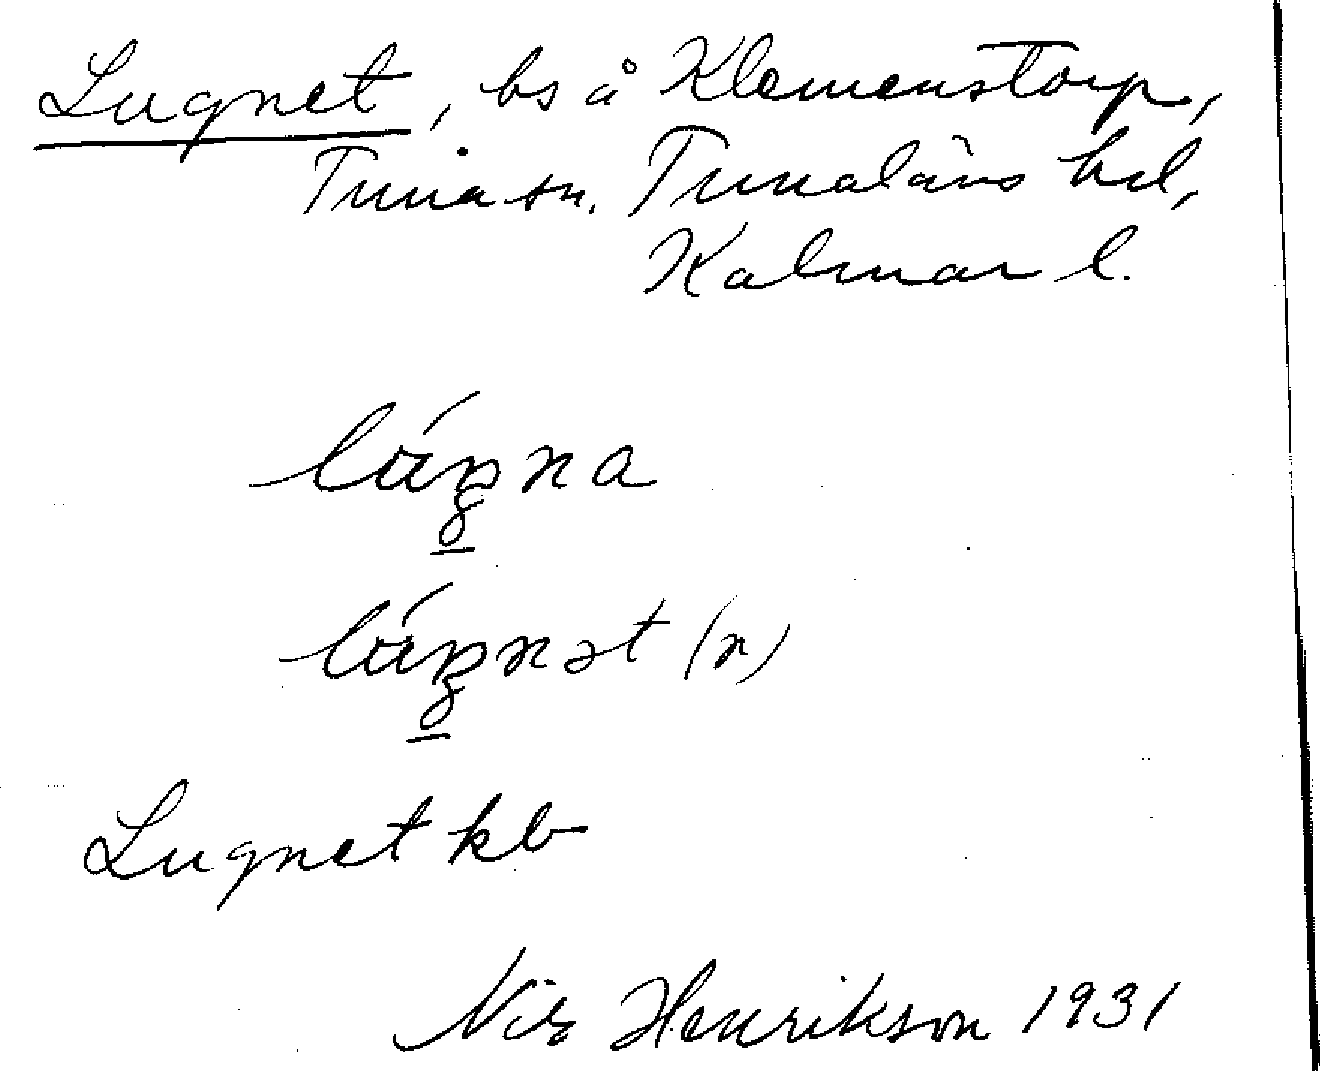 Lugnet, bs å Klemenstorp,
Tuna sn. Tunaläns hd,
Kalmar l.
Lugnet kb
Nils Henrikson 1931